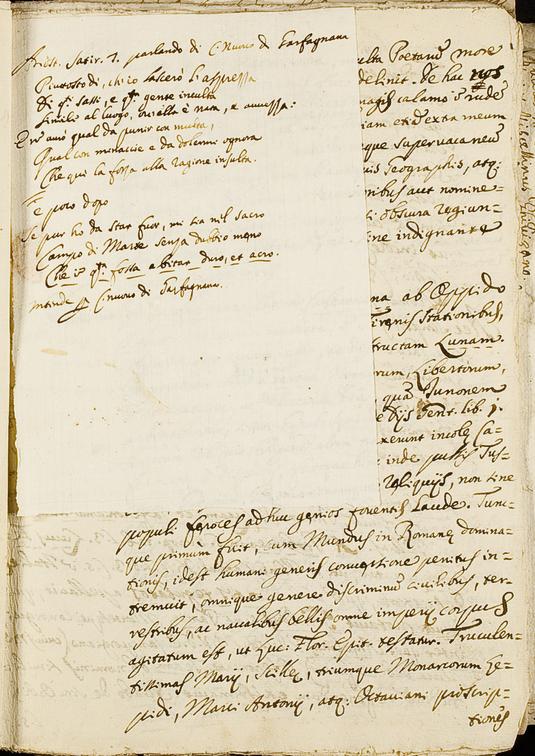 Ariost. Satir. 7. parlando di C.nuovo di Garfagnana
Piutosto di, ch'io lascerò l'asprezza
Di q.ti sassi, e q.ta gente inculta
Simile al luogo, ov'ella è nata, e avvezza:
E n'avrò qual da punir con multa,
Qual con menaccie e da dolermi ognora
Che qui la forza alla ragione insulta.
E poco dopo
Se pur ho da star fuor, mi sia nel sacro
Campo di Marte senza dubbio meno
Che in q.ta fossa abitar duro, et acro.
intende p C.nuovo di Garfagnana.
ulta Poetarũ more
delinit. De hac nos
magis calamo
iam et id extra meum
que supervacaneũ
Geographis, atq;
nibus aut nomine=
obscura Region=
ine indignante
na ab Oppido
Stationibus,
structam Lunam.
rum, Libertinum,
quã Junonem
e Dijs Gent. lib. 1.
xerunt incolę Ca=
inde pulsis Tus=
Reliquijs, non sine
populi feroces adhuc genios foventis laude. Tunc=
que primùm fuit, cum Mundus in Romanę domina=
tionis, idest humani generis conversione penitus in=
tremuit, omnique genere discriminũ civilibus, ter=
restribus, ac navalibus bellis omne imperij corpus
agitatum est, ut Luc: Flor. Epit. testatur. Truculen=
tissimas Marij, Scillę, triumque Monarcorum Le=
pidi, Marci Antonij, atq; Octaviani proscrip=
tiones